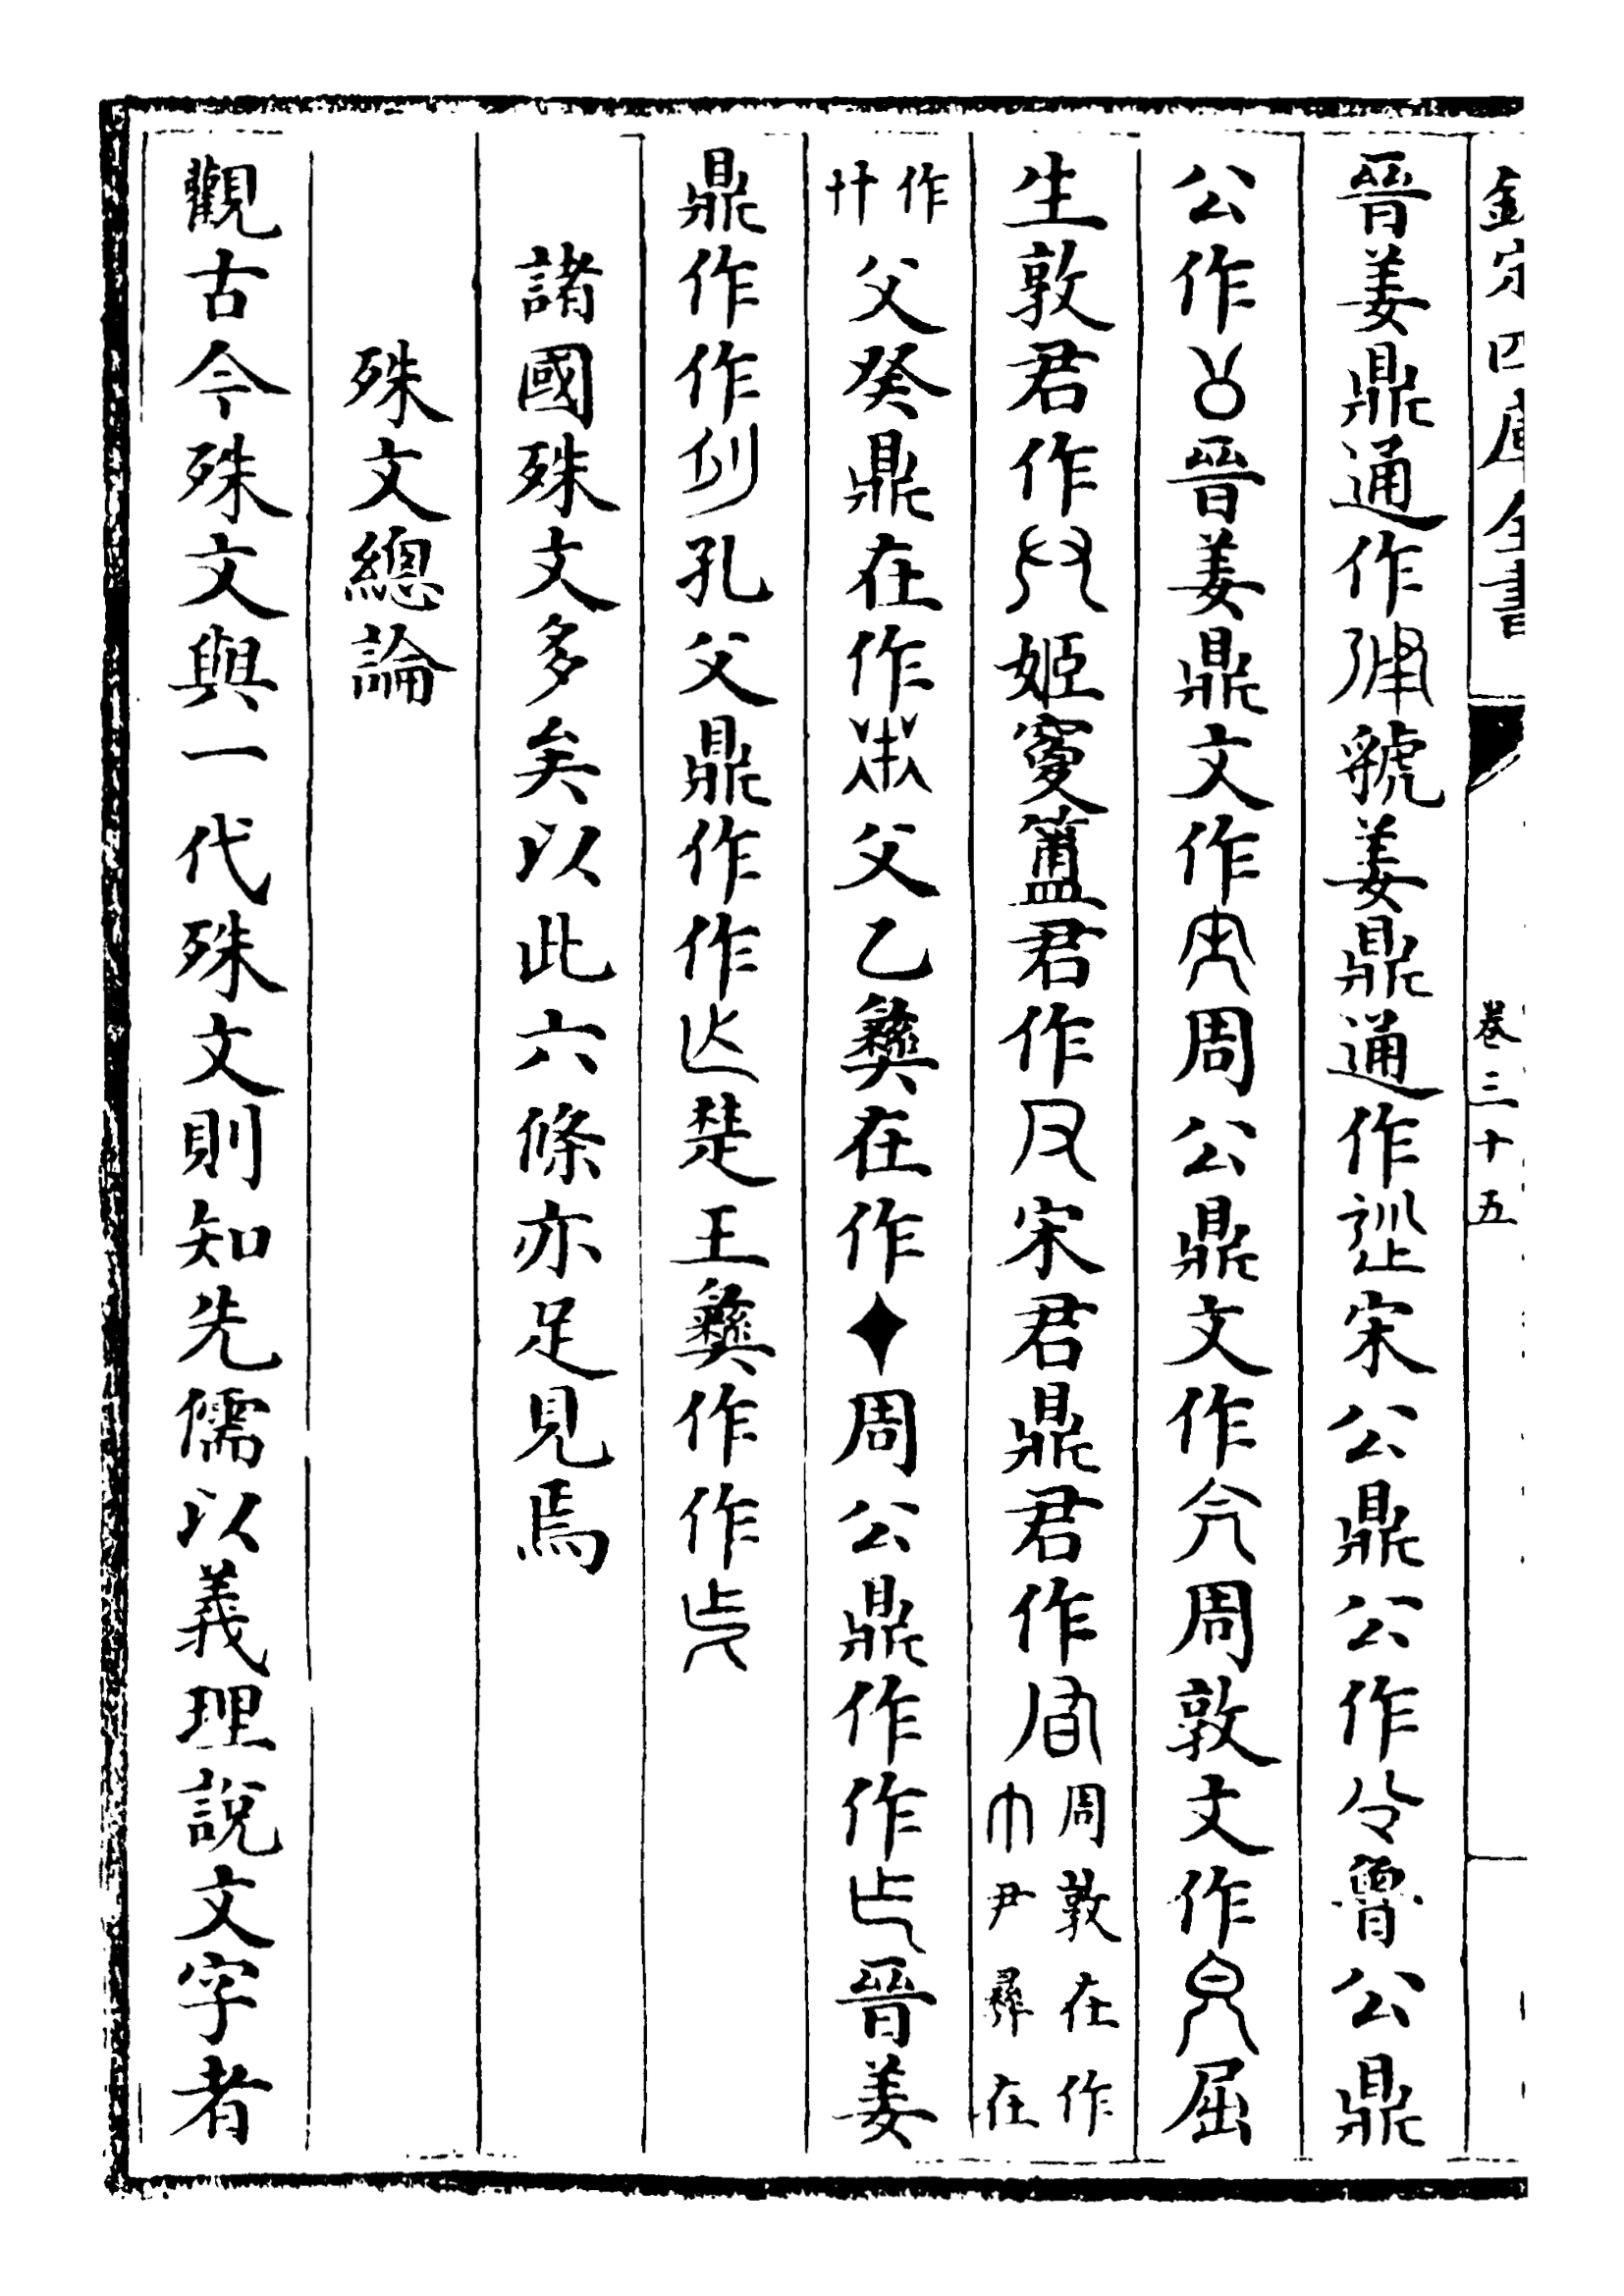 欽定四庫全書
卷三十五
晉姜鼎通作虢姜鼎通作宋公鼎公作魯公鼎
公作晉姜鼎文作周公鼎文作周敦文作屈
生敦君作姬寏簠君作宋君鼎君作周敦在作尹彛在
作父癸鼎在作父乙彝在作周公鼎作作晉姜
鼎作作孔父鼎作作楚王彝作作
諸國殊文多矣以此六條亦足見焉
殊文總論
觀古今殊文與一代殊文則知先儒以義理說文字者